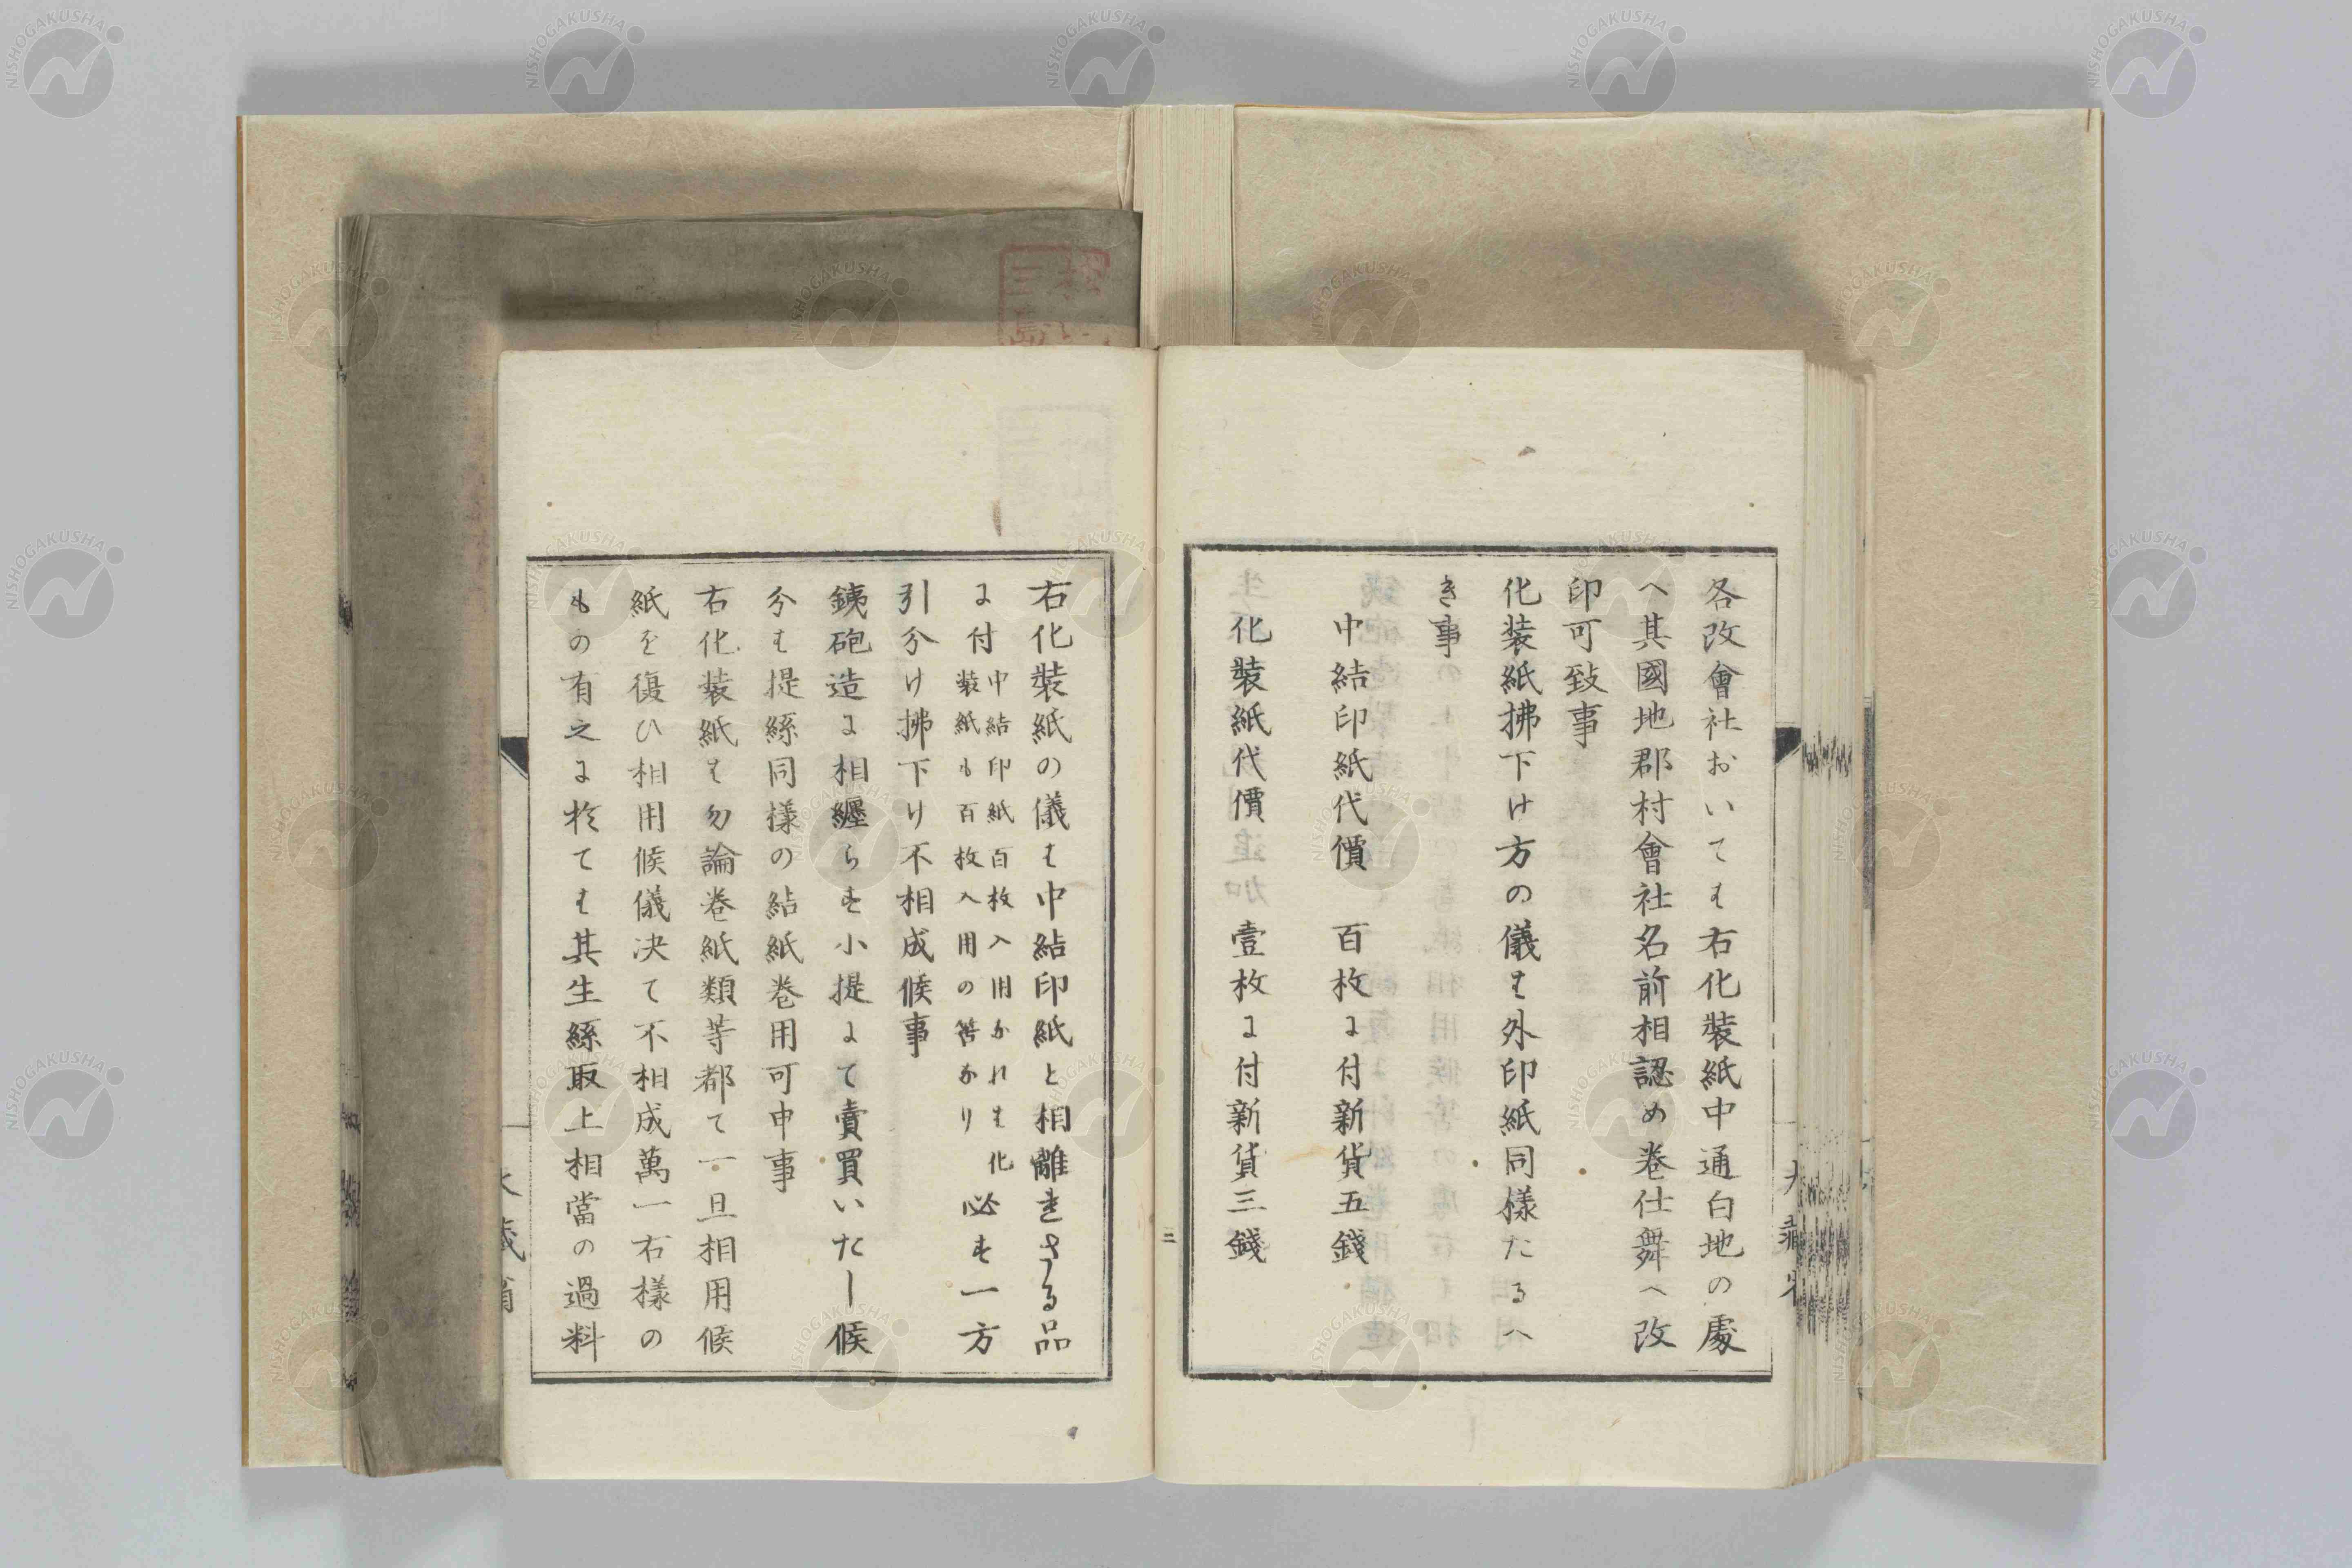 各改會社おいてハ右化装紙中通白地の處
へ其國地郡村會社名前相認め巻仕舞へ改
印可致事
化装紙拂下け方の儀ハ外印紙同様たるへ
き事
中結印紙代價 百枚に付新貨五錢
化裝紙代價 壹枚に付新貨三錢
三
右化裝紙の儀ハ中結印紙と相離すさる品
に付
中結印紙百枚入用なれハ化
装紙も百枚入用の筈なり
必す一方
引分け拂下け不相成候事
銕砲造に相纒らす小提にて賣買いたし候
分ハ提絲同樣の結紙巻用可申事
右化装紙ハ勿論巻紙類等都て一旦相用候
紙を復ひ相用候儀决て不相成萬一右樣の
もの有之に於てハ其生絲取上相當の過料
NISHOGAKUSHA